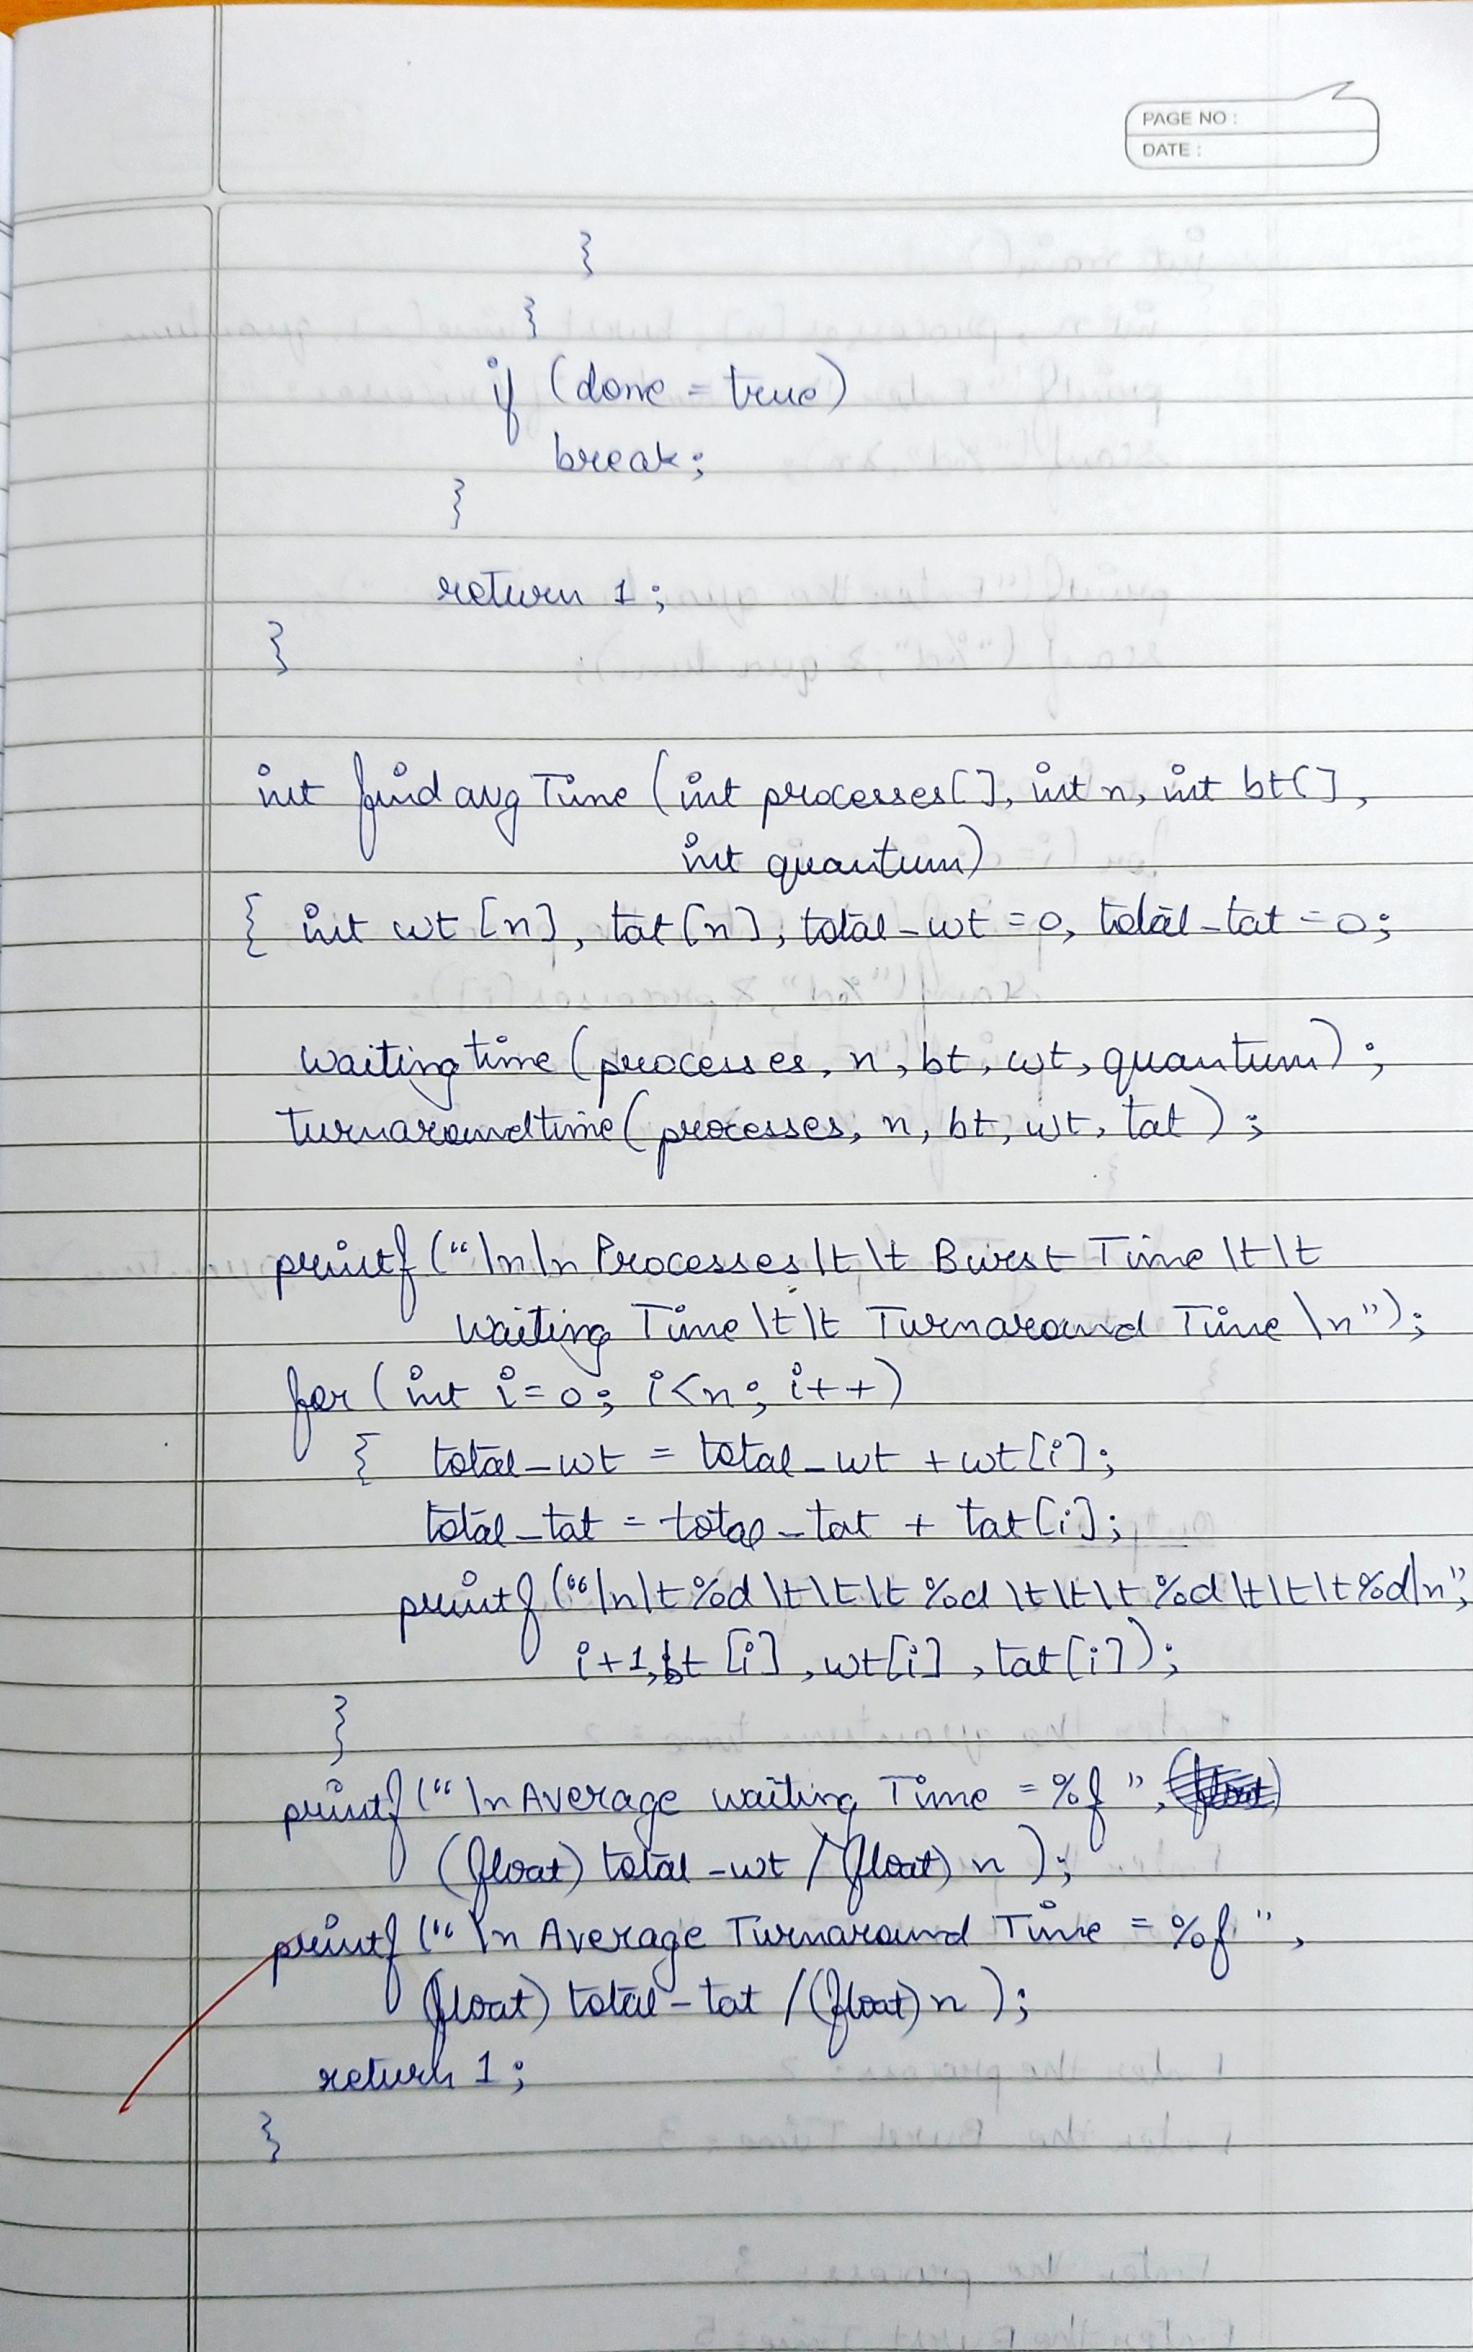 PAGE NO :
DATE :
}
}
if (done = true)
break;
}
return 1;
}
int findavgTime (int processes[], int n, int bt[],
int quantum)
{ int wt [n], tat[n], total_wt = 0, total_tat = 0;
waitingtime (processes, n, bt, wt, quantum);
turnaroundtime (processes, n, bt, wt, tat);
printf ("\n\n Processes \t \t Burst Time \t \t
Waiting Time \t \t Turnaround Time \n");
for (int i=0; i<n; i++)
{ total_wt = total_wt + wt[i];
total_tat = total_tat + tat[i];
printf ("\n\t %d \t \t \t %d \t \t \t %d \t \t \t %d\n",
i+1, bt [i], wt[i], tat[i]);
}
printf ("\n Average waiting Time = %f ",
(float) total_wt / (float) n );
printf (" \n Average Turnaround Time = %f ",
(float) total_tat / (float) n );
return 1;
}